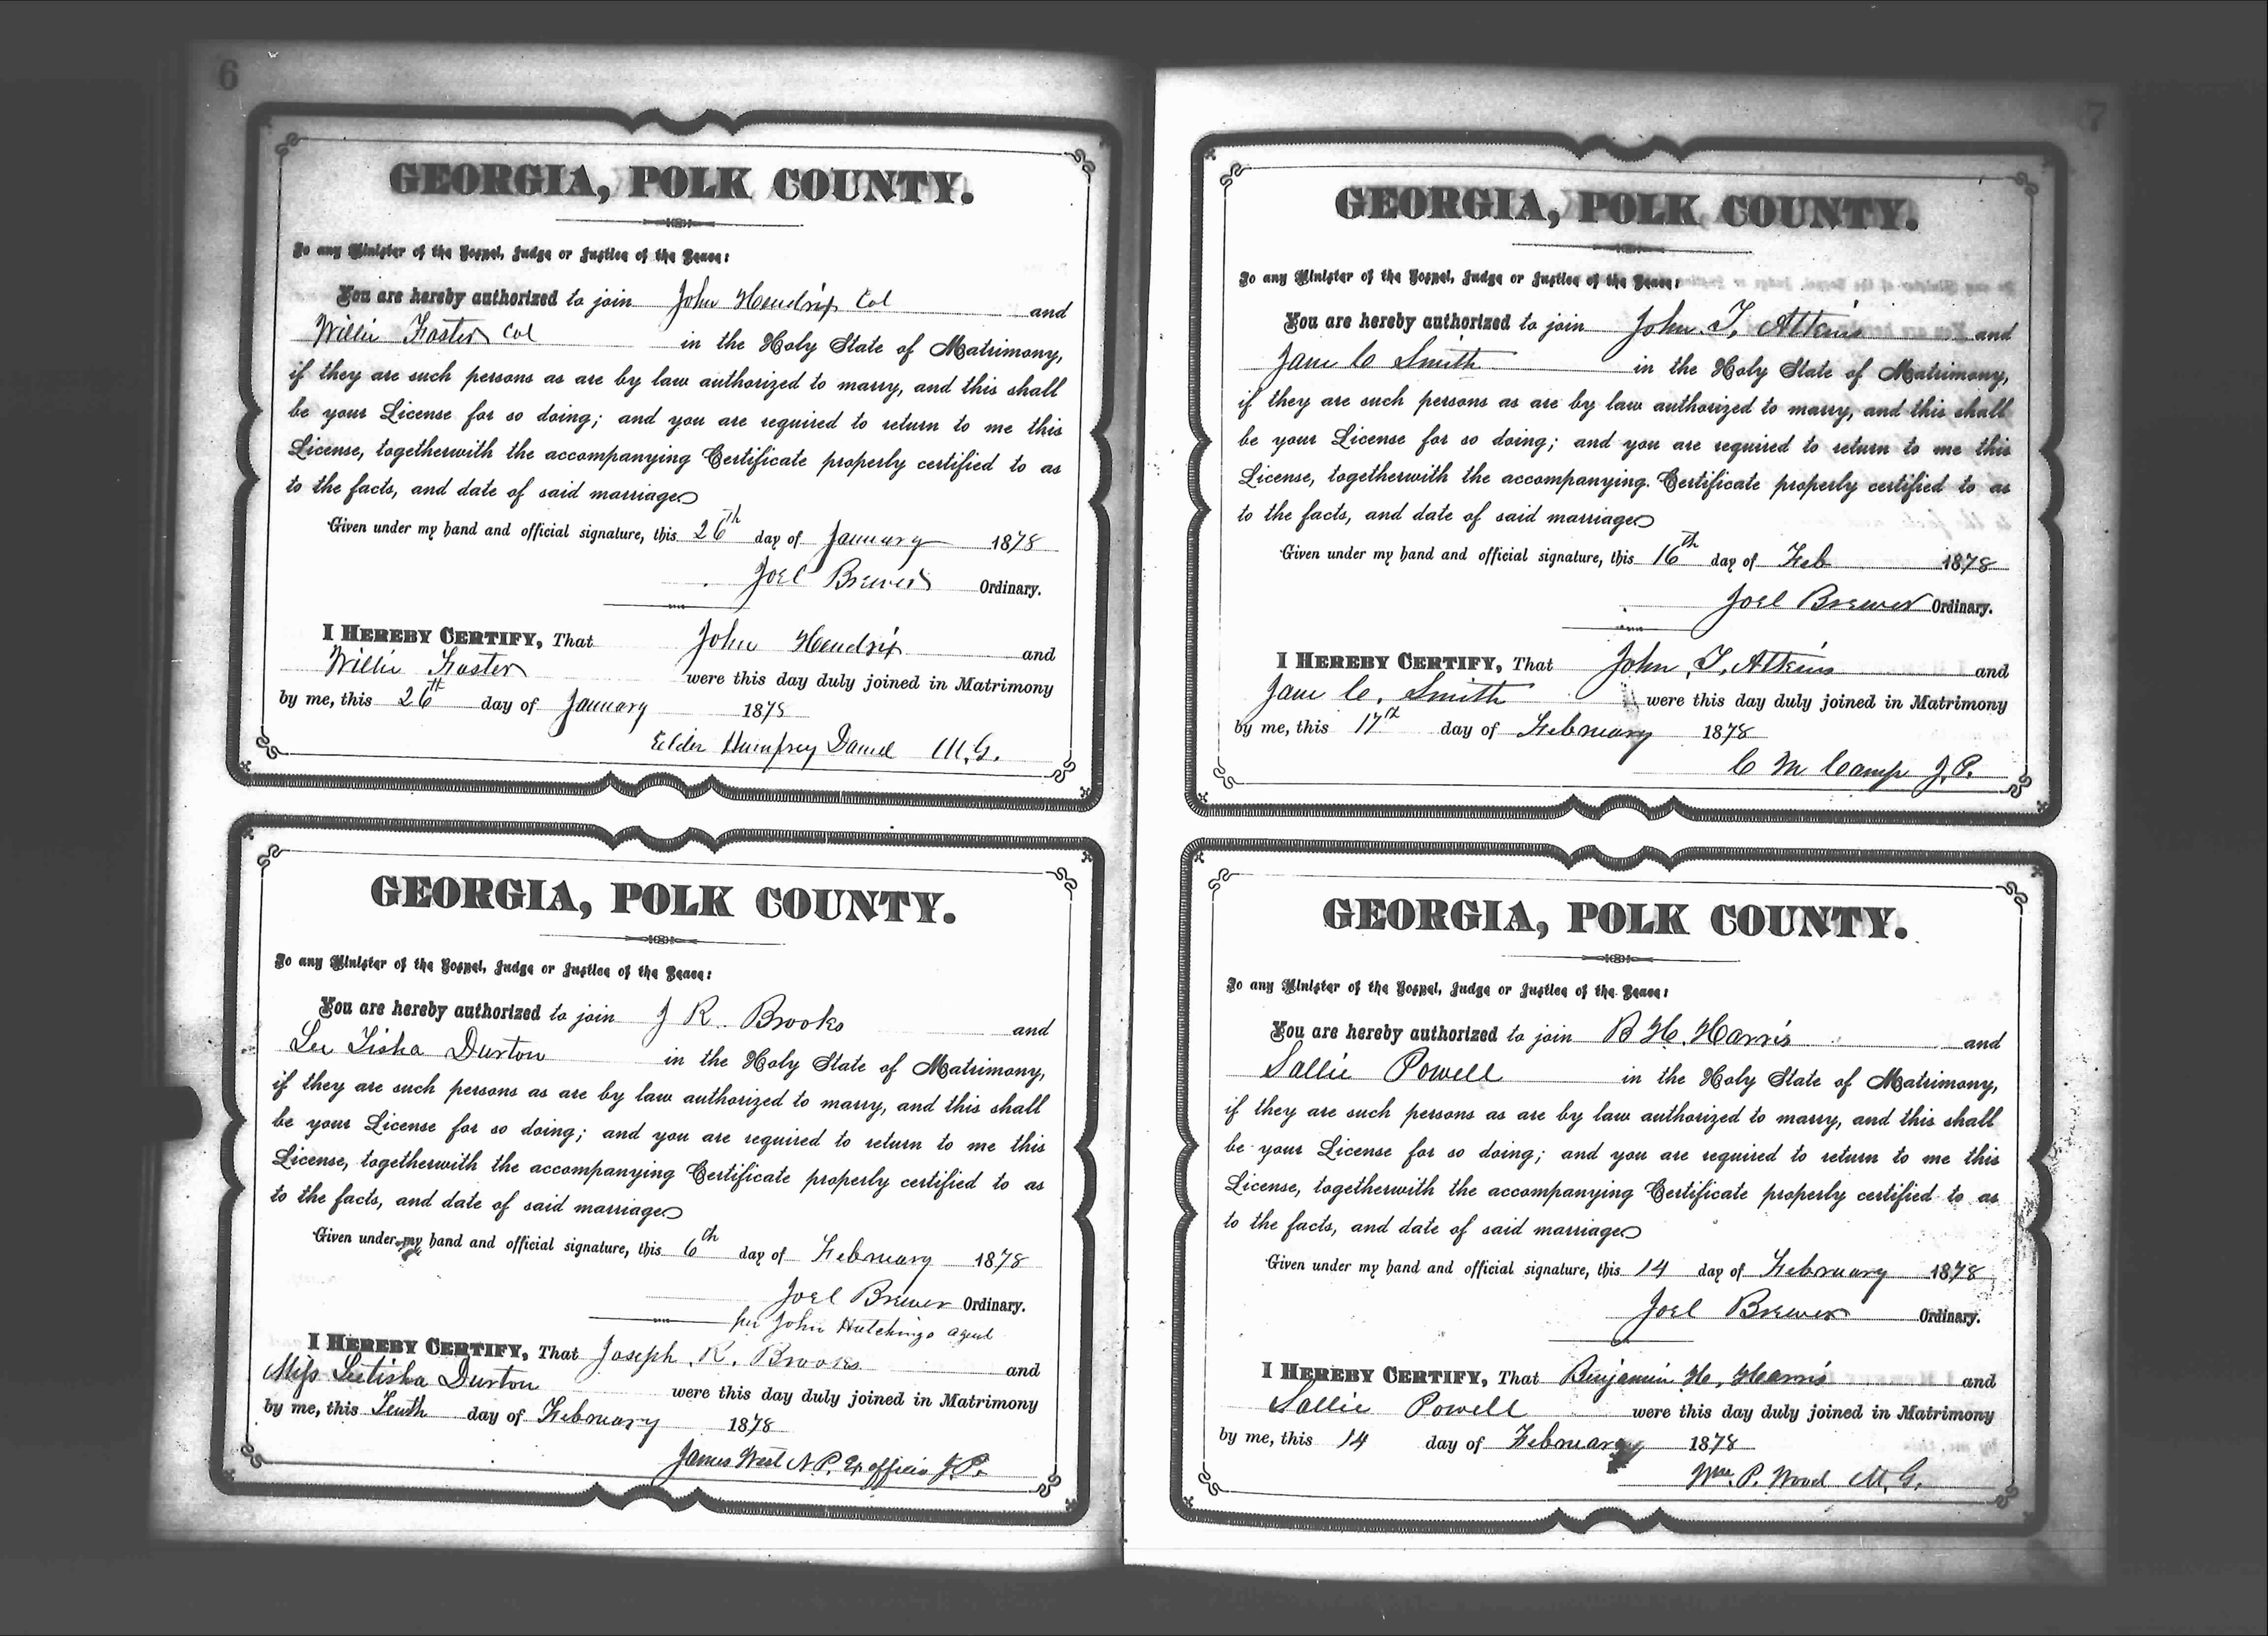 6
GEORGIA, POLK COUNTY.
To any Minister of the Gospel, Judge or Justice of the Peace:
You are hereby authorized to join John Hendrix Col and
Willie Foster Col in the Holy State of Matrimony,
if they are such persons as are by law authorized to marry, and this shall
be your License for so doing; and you are required to return to me this
License, togetherwith the accompanying Certificate properly certified to as
to the facts, and date of said marriage
Given under my hand and official signature, this 26th day of January 1878
Joel Brewer Ordinary.
I HEREBY CERTIFY, That John Hendrix and
Willie Foster were this day duly joined in Matrimony
by me, this 26th day of January 1878
Elder Humfrey Daniel M.G.
GEORGIA, POLK COUNTY.
To any Minister of the Gospel, Judge or Justice of the Peace:
You are hereby authorized to join J R. Brooks and
Lee Tisha Durton in the Holy State of Matrimony,
if they are such persons as are by law authorized to marry, and this shall
be your License for so doing; and you are required to return to me this
License, togetherwith the accompanying Certificate properly certified to as
to the facts, and date of said marriage
Given under my hand and official signature, this 6th day of February 1878
Joel Brewer Ordinary.
per John Hutchings agent
I HEREBY CERTIFY, That Joseph. R. Brooks and
Miss Leetisha Durton were this day duly joined in Matrimony
by me, this Tenth day of February 1878
James West N.P. Ex officio J.P.
7
GEORGIA, POLK COUNTY.
To any Minister of the Gospel, Judge or Justice of the Peace:
You are hereby authorized to join John. T. Atkins and
Jane C Smith in the Holy State of Matrimony,
if they are such persons as are by law authorized to marry, and this shall
be your License for so doing; and you are required to return to me this
License, togetherwith the accompanying Certificate properly certified to as
to the facts, and date of said marriage
Given under my hand and official signature, this 16th day of Feb 1878
Joel Brewer Ordinary.
I HEREBY CERTIFY, That John, T. Atkins and
Jane C. Smith were this day duly joined in Matrimony
by me, this 17th day of February 1878
C M Camp J.P.
GEORGIA, POLK COUNTY.
To any Minister of the Gospel, Judge or Justice of the Peace:
You are hereby authorized to join B H. Harris and
Sallie Powell in the Holy State of Matrimony,
if they are such persons as are by law authorized to marry, and this shall
be your License for so doing; and you are required to return to me this
License, togetherwith the accompanying Certificate properly certified to as
to the facts, and date of said marriage
Given under my hand and official signature, this 14 day of February 1878
Joel Brewer Ordinary.
I HEREBY CERTIFY, That Benjamin H. Harris and
Sallie Powell were this day duly joined in Matrimony
by me, this 14 day of February 1878
Wm. P. Wood M.G.